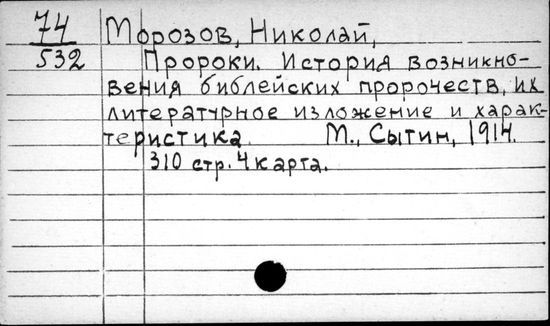 74 Морозов, Николай,
532 Пророки. История возникно-
вения библейских пророчеств, их
литературное изложение и харак-
теристика. М., Сытин, 1914.
310 стр. 4 карта.